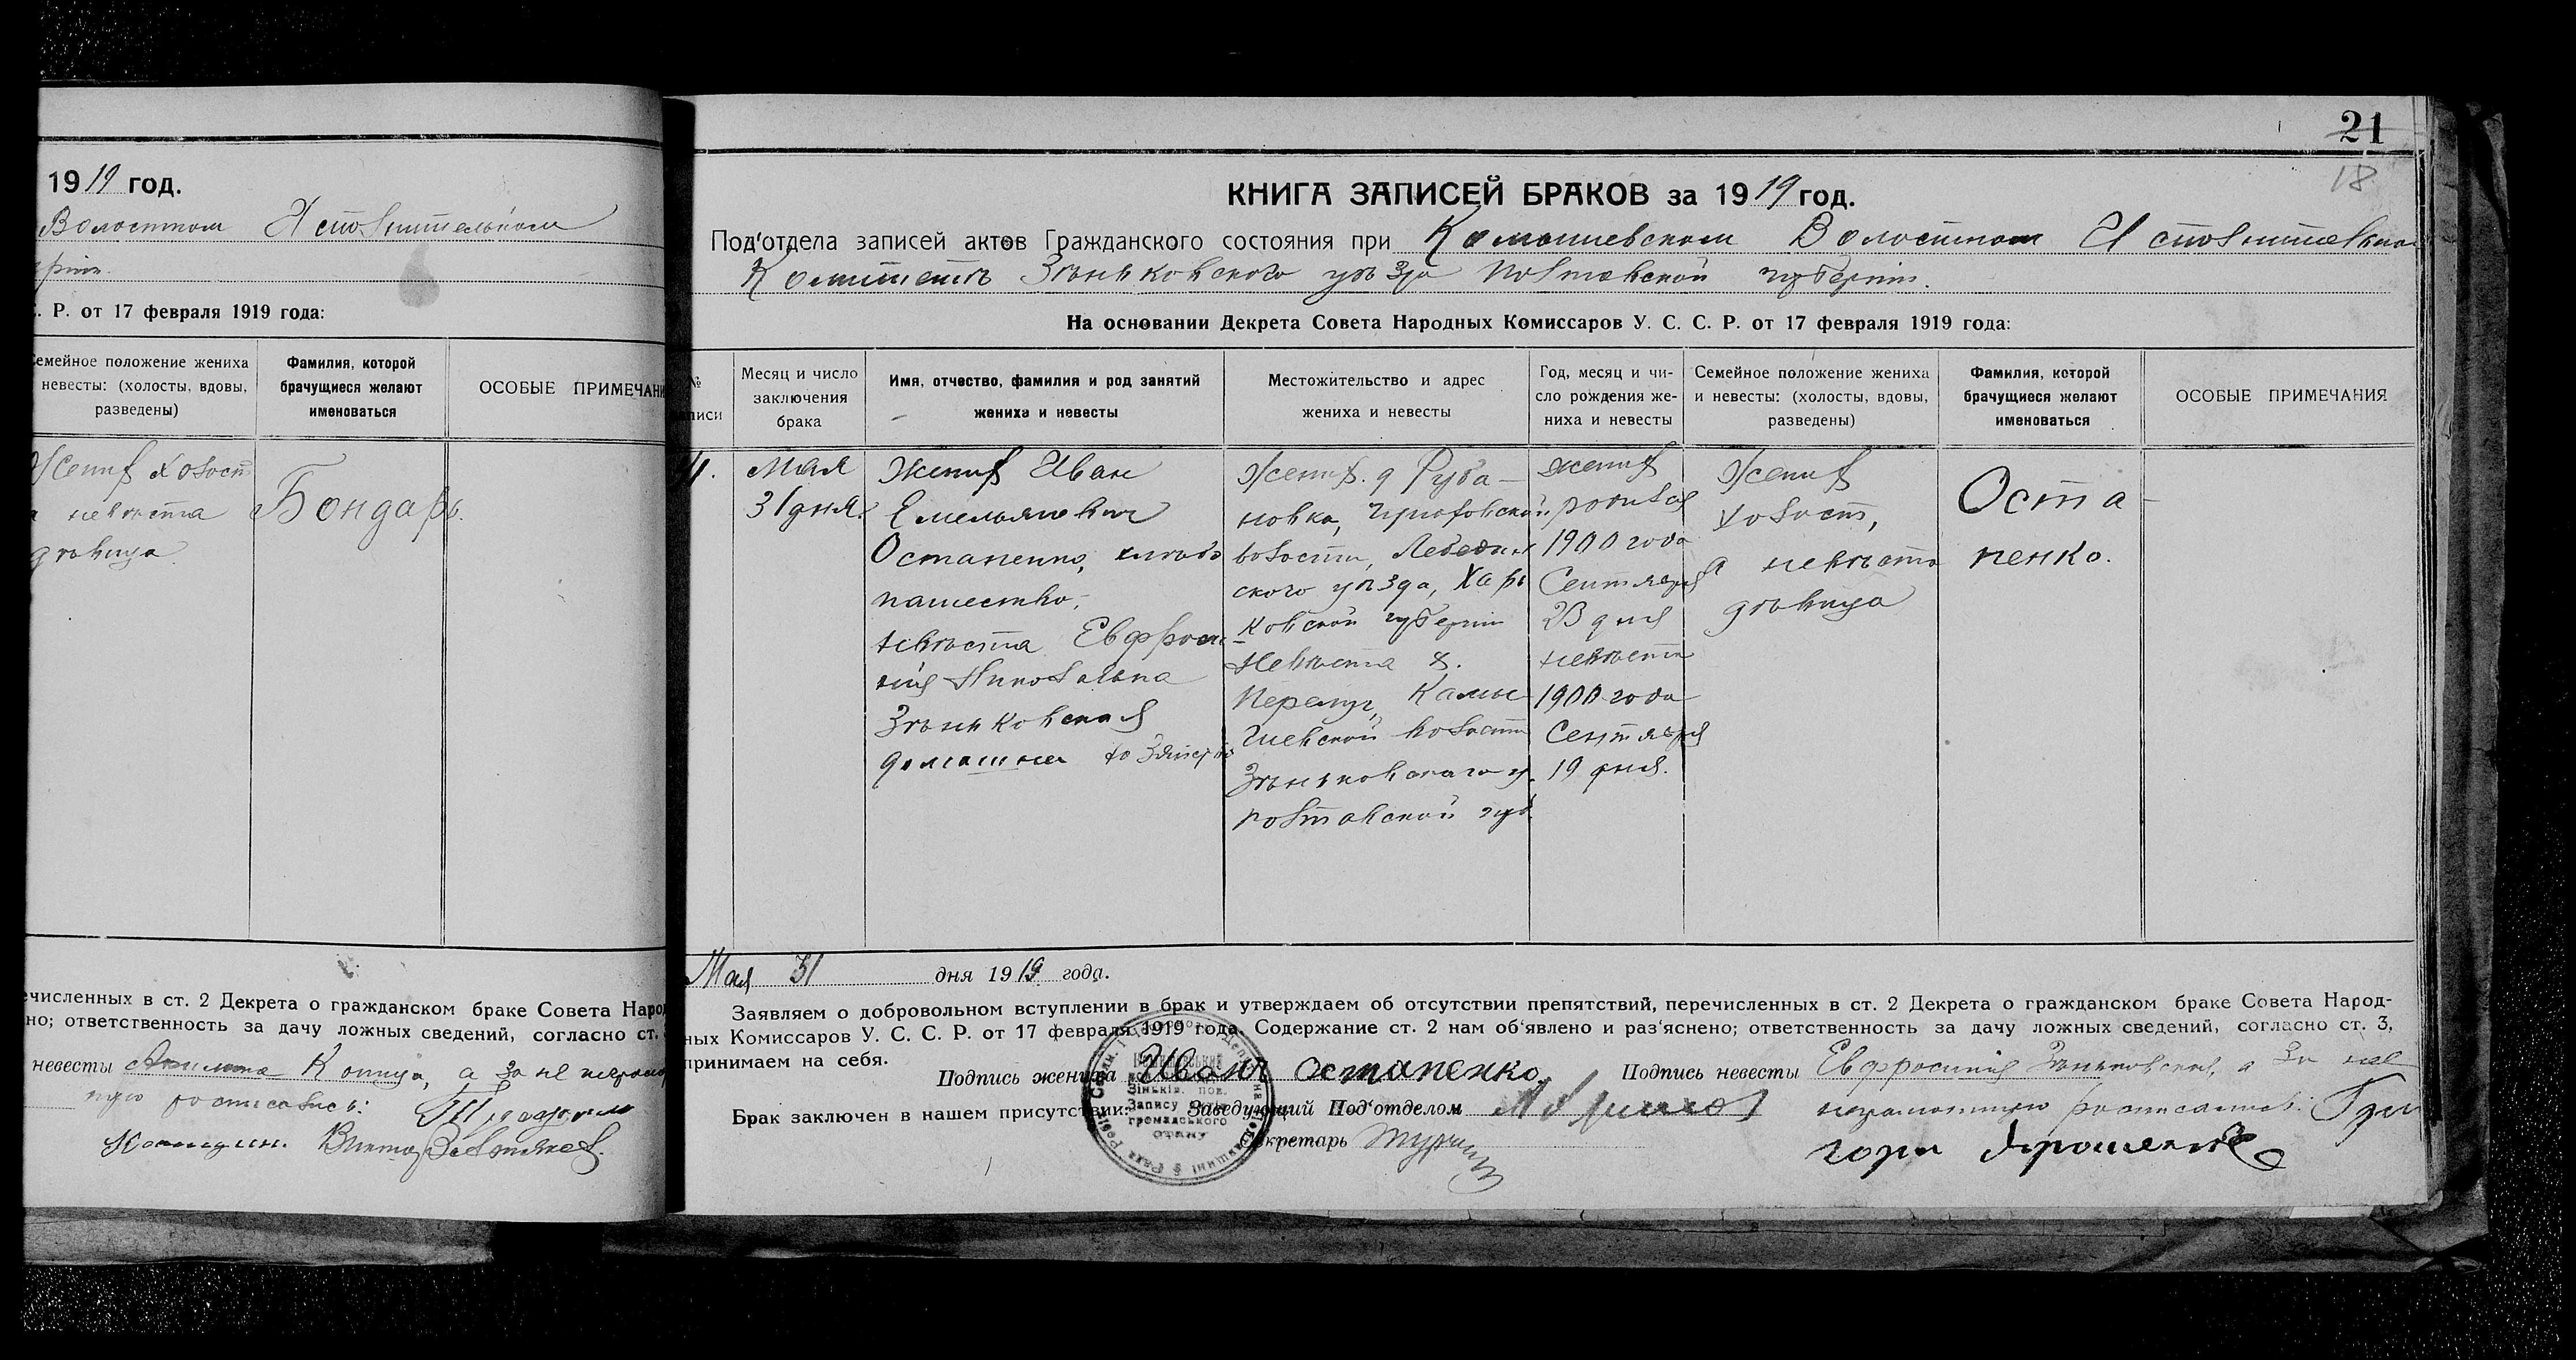 1919 год.
Волостном Исполнительном
С. Р. от 17 февраля 1919 года:
Семейное положение жениха
невесты: (холосты, вдовы,
разведены)
Фамилия, которой
брачущиеся желают
именоваться
ОСОБЫЕ ПРИМЕЧАНИ
Жених холост
а невѣста
дѣвица
Бондарь.
ечисленных в ст. 2 Декрета о гражданском браке Совета Наро
но; ответственность за дачу ложных сведений, согласно ст.
невесты Котица, а за не неграмот
ную росписались:
21
18
КНИГА ЗАПИСЕЙ БРАКОВ за 1919 год.
Под'отдела записей актов Гражданского состояния при Комышевском Волостном Исполнительно
Комитетѣ Зѣньковского уѣзда Полтавской губерніи.
На основании Декрета Совета Народных Комиссаров У. С. С. Р. от 17 февраля 1919 года:
№
аписи
Месяц и число
заключения
брака
Имя, отчество, фамилия и род занятий
жениха и невесты
Местожительство и адрес
жениха и невесты
Год, месяц и чи-
сло рождения же-
ниха и невесты
Семейное положение жениха
и невесты: (холосты, вдовы,
разведены)
Фамилия, которой
брачущиеся желают
именоваться
ОСОБЫЕ ПРИМЕЧАНИЯ
Мая
31 дня.
Жених Иван
Емельянович
Остапенко, хлѣбо
пашество,
невѣста Евфроси-
нія Николаевна
Зѣньковская
домашнее хозяйство
Жених. д Руба-
новка, Груновской
волости, Лебедин
ского уѣзда, Харь
ковской губерніи
Невѣста х.
Перелуг, Камы
шевской волости
Зѣньковского у.
Полтавской губ.
жених
родился
1900 года
Сентября
23 дня
невѣста
1900 года
Сентября
19 дня.
Жених
холост,
а невѣста
дѣвица
Оста-
пенко.
Мая 31 дня 1919 года.
Заявляем о добровольном вступлении в брак и утверждаем об отсутствии препятствий, перечисленных в ст. 2 Декрета о гражданском браке Совета Народ-
ных Комиссаров У. С. С. Р. от 17 февраля 1919 года. Содержание ст. 2 нам об'явлено и раз'яснено; ответственность за дачу ложных сведений, согласно ст. 3,
принимаем на себя.
Подпись жениха Иванъ Остапенко
Подпись невесты Евфросинія Зѣньковская, а за не
неграмотную росписался: Гри
гори Ярошенко
Брак заключен в нашем присутствии: Заведующий Под'отделом
кретарь
Зіньків. пов.
Запису актів
громадського
стану